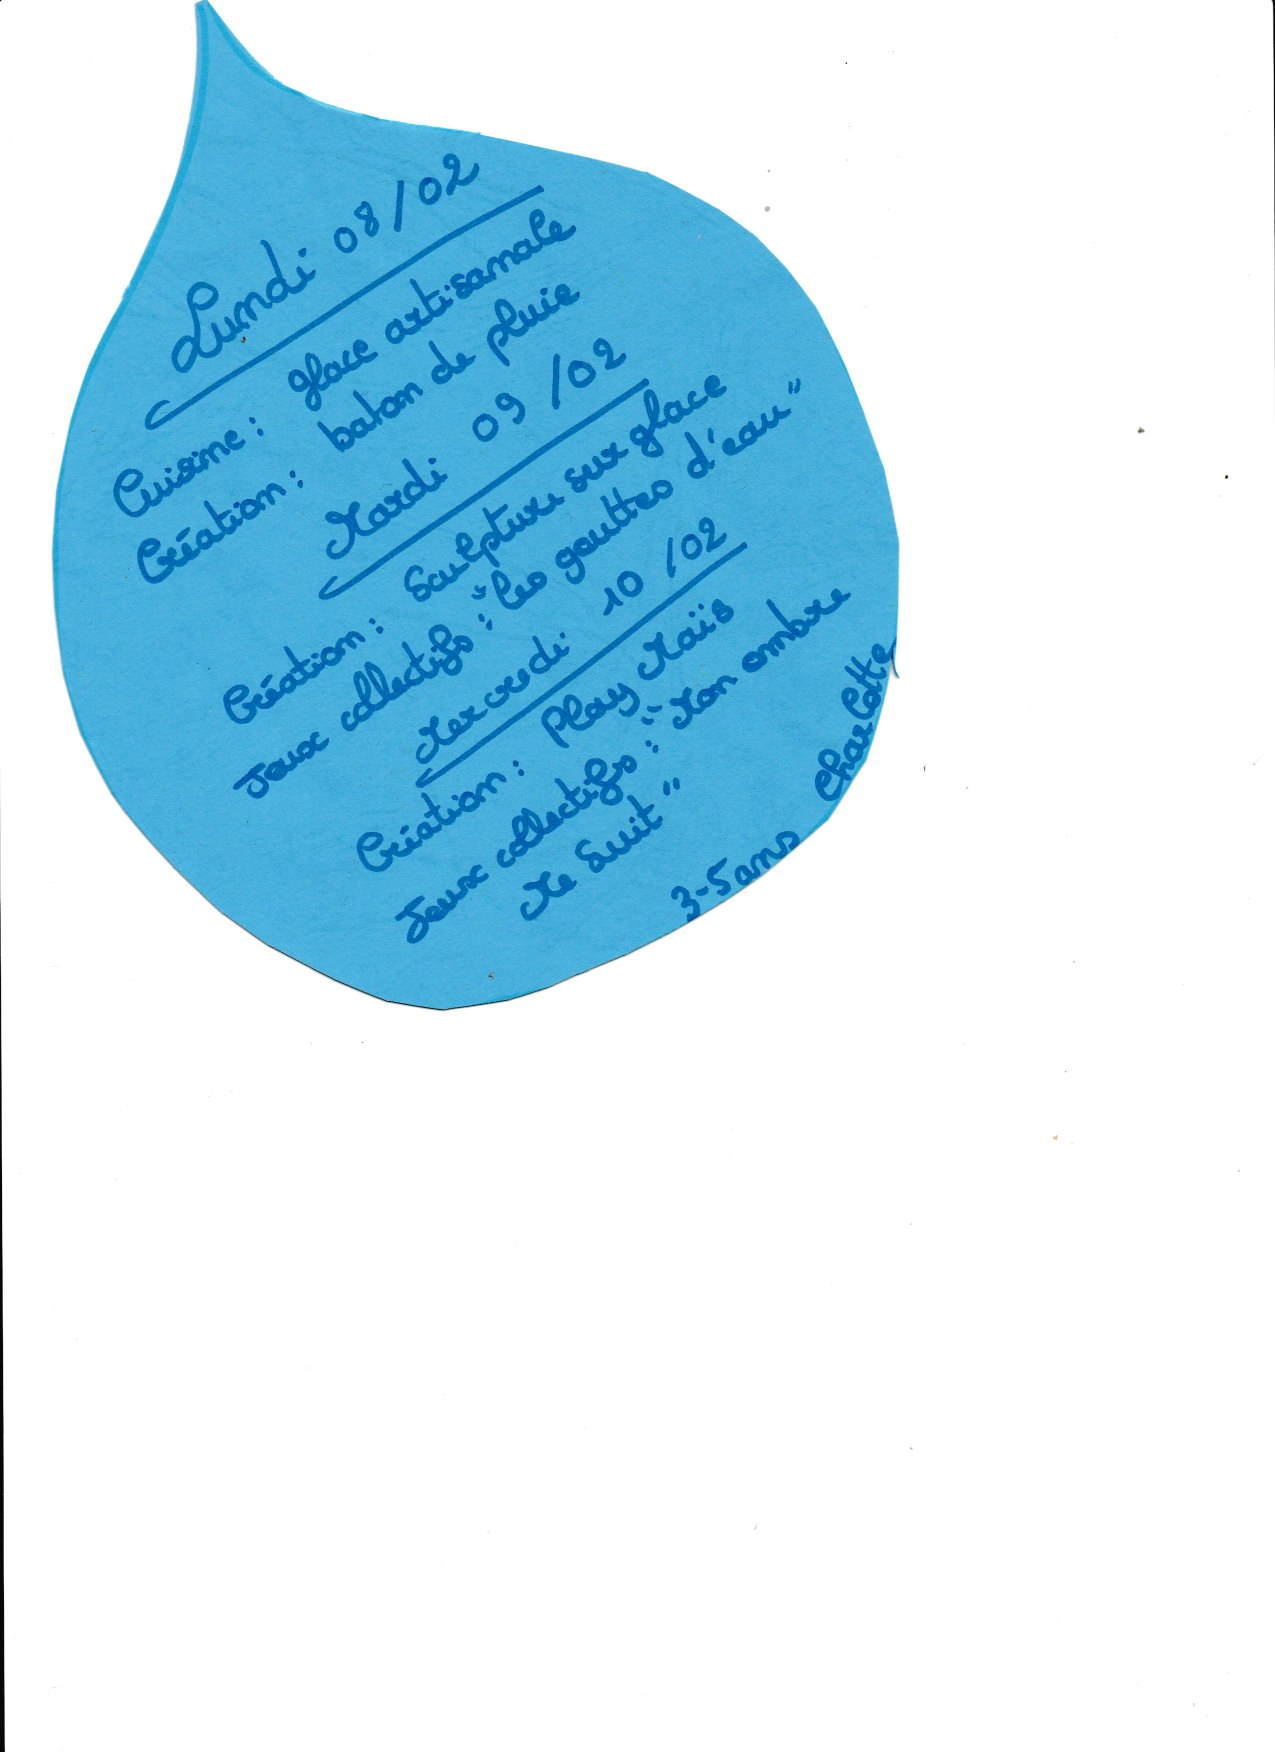 Lundi 08/02
Cuisine : glace artisanale
Création : baton de pluie
Mardi 09/02
Création : Sculpture sur glace
Jeux collectifs : "les gouttes d'eau"
Mercredi 10/02
Création : Play Maïs
Jeux collectifs : "Mon ombre
Me Suit"
3-5 ans Charlotte